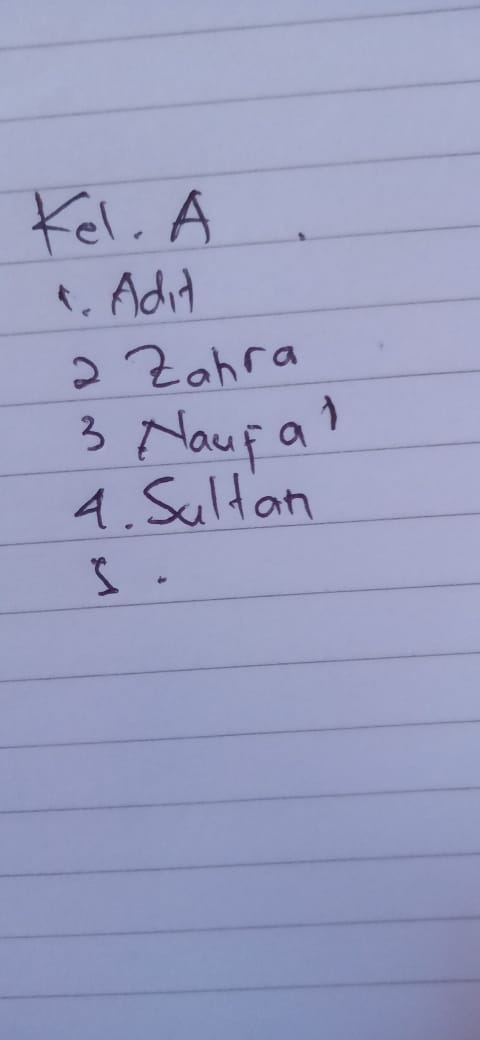 Kel. A
1. Adit
2 Zahra
3 Naufal
4. Sultan
5.